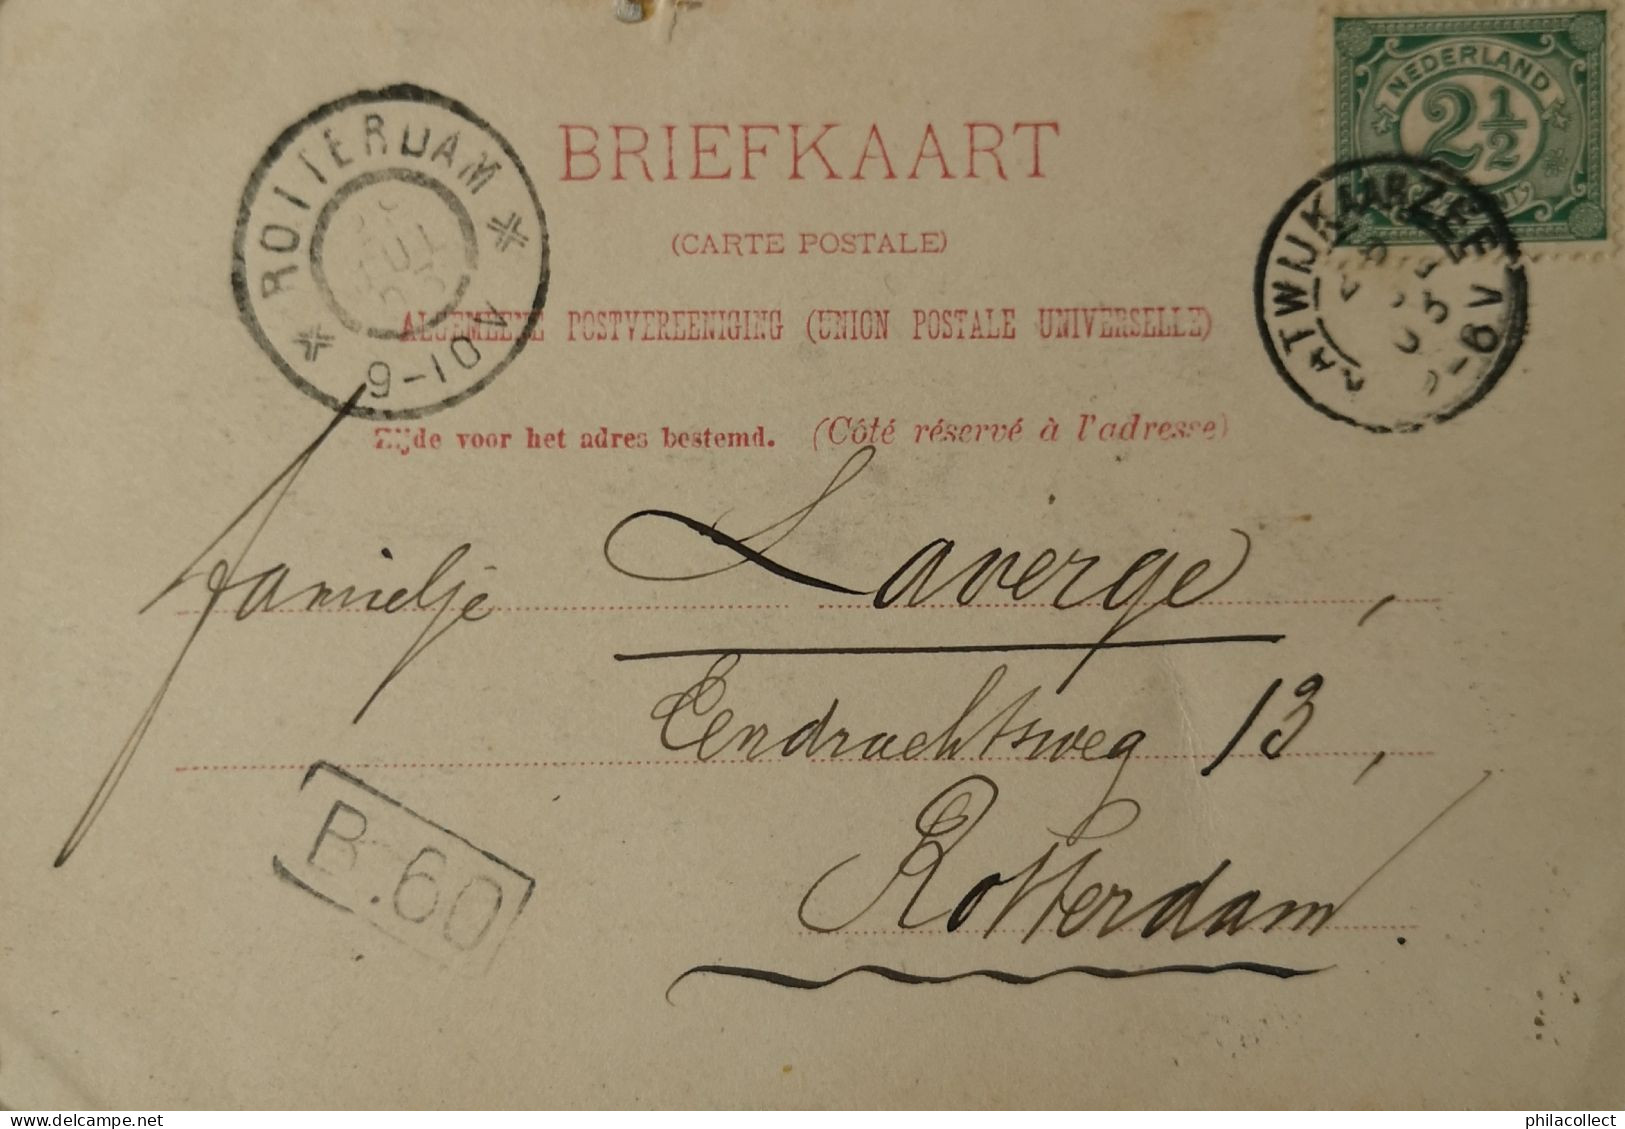 BRIEFKAART
(CARTE POSTALE)
ALGEMEENE POSTVEREENIGING (UNION POSTALE UNIVERSELLE)
Zijde voor het adres bestemd. (Côté réservé à l'adresse)
NEDERLAND
2 1/2
ROTTERDAM
JUL
9-10 V
KATWIJKAANZEE
-8 V
familje Laverge,
Eendrachtsweg 13,
Rotterdam.
B.60
philacollect